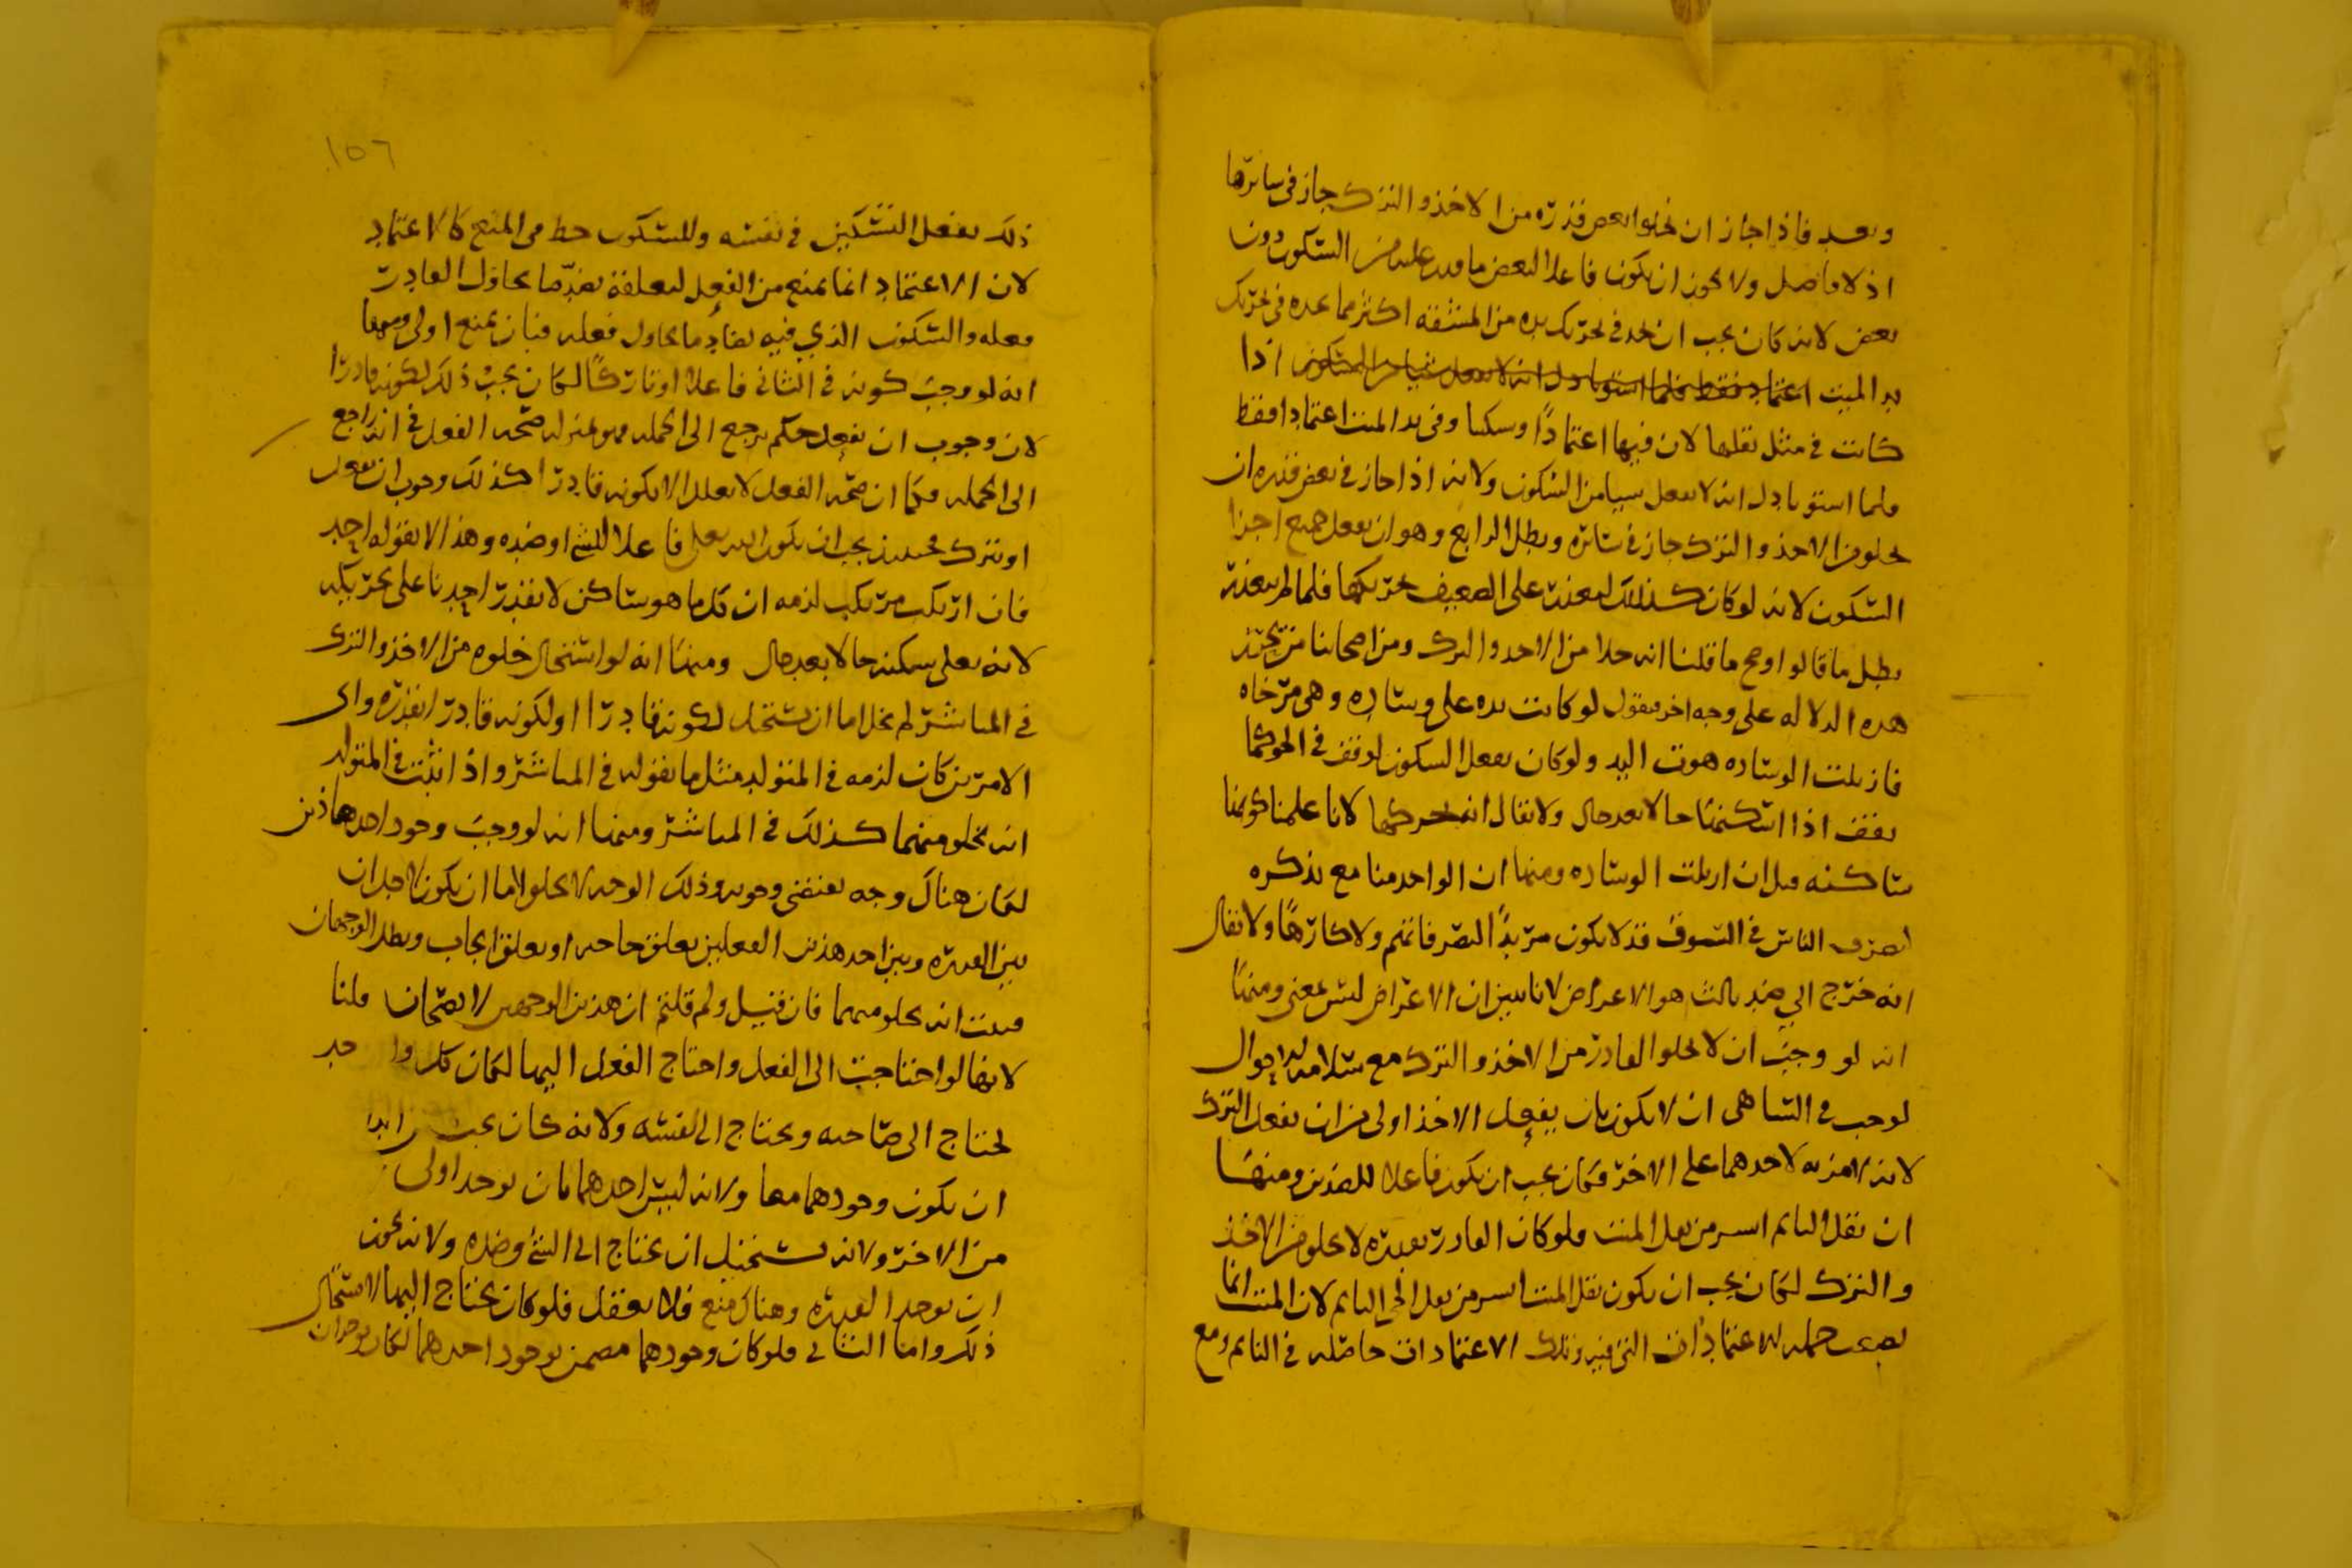 وبعد فاذا جاز ان يخلوا بعض قدره من الاخذ والترك جاز في سائرها
اذ لا فاصل ولا يجوز ان يكون فاعلا لبعض ما قدر عليه من السكون دون
بعض لانه كان يجب ان نجد في تحريك يده من المشقة اكثر مما نجده في تحريك
يد الميت اعتماد فقط فلما استويا دل انه لا يفعل شيا من السكون اذا
كانت في مثل ثقلها لان فيها اعتمادًا وسكنا وفي يد الميت اعتمادا فقط
فلما استويا دل انه لا يفعل شيا من السكون ولانه اذا جاز في بعض قدره ان
يخلو من الاخذ والترك جاز في سائره وبطل الرابع وهو ان يفعل جميع اجزا
السكون لانه لو كان كذلك لتعذر على الضعيف تحريكها فلما لم يتعذر
بطل ما قالوا وصح ما قلنا انه خلا من الاخذ والترك ومن اصحابنا من يحرر
هذه الدلاله على وجه اخر فيقول لو كانت يده على وساده وهي مرخاه
فازيلت الوساده هوت اليد ولو كان يفعل السكون لوقفت في الجو كما
يقف اذا اسكنها حالا بعد حال ولا يقال انه يحركها لانا علمنا كونها
ساكنه قبل ان ازيلت الوساده ومنها ان الواحد منا مع تذكره
لتصرف الناس في السوق قد لا يكون مريدًا لتصرفاتهم ولا كارهًا ولا يقال
انه خرج الى ضد ثالث هو الاعراض لانا نبين ان الاعراض ليس بمعنى ومنها
انه لو وجب ان لا يخلو القادر من الاخذ والترك مع سلامه الاحوال
لوجب في الساهي ان لا يكون بان يفعل الاخذ اولى من ان يفعل الترك
لانه لا مزيه لاحدهما على الاخر فكان يجب ان يكون فاعلا للضدين ومنها
ان ثقل النائم ايسر من ثقل الميت فلو كان القادر بقدره لا يخلو من الاخذ
والترك لكان يجب ان يكون ثقل الميت ايسر من ثقل الحي النائم لان الميت انما
يصعب حمله للاعتمادات التي فيه وتلك الاعتمادات حاصله في النائم ومع
١٥٦
ذلك يفعل التسكين في نفسه وللسكون حظ من المنع كالاعتماد
لان الاعتماد انما يمنع من الفعل لتعلقه بضد ما يحاول القادر
فعله والسكون الذي فيه يضاد ما يحاول فعله فبان يمنع اولى ومنها
انه لو وجب كونه في الثاني فاعلا او تاركًا لكان يجب ذلك لكونه قادرا
لان وجوب ان يفعل حكم يرجع الى الجمله فهو بمنزله صحه الفعل في انه راجع
الى الجمله فكما ان صحه الفعل لا يعلل الا بكونه قادرا كذلك وجوب ان يفعل
او يترك فحينئذ يجب ان يكون الله تعلى فاعلا للشئ او ضده وهذا لا يقوله احد
فان ارتكب مرتكب لزمه ان كل ما هو ساكن لا يقدر احدنا على تحريكه
لانه تعلى يسكنه حالا بعد حال ومنها انه لو استحال خلوه من الاخذ والترك
في المباشر لم يخل اما ان يستحيل لكونه قادرا او لكونه قادرا بقدره واي
الامرين كان لزمه في المتولد مثل ما يقوله في المباشر واذا ثبت في المتولد
انه يخلو منهما كذلك في المباشر ومنها انه لو وجب وجود احد هاذين
لكان هناك وجه يقتضي وجوبه وذلك الوجه لا يخلو اما ان يكون لاجل ان
بين القدره وبين احد هذين الفعلين تعلق حاجه او تعلق ايجاب وبطل الوجهان
فثبت انه يخلو منهما فان قيل ولم قلتم ان هذين الوجهين لا يصحان قلنا
لانها لو احتاجت الى الفعل واحتاج الفعل اليها لكان كل واحد
يحتاج الى صاحبه ويحتاج الى نفسه ولانه كان يجب ابدا
ان يكون وجودهما معا ولانه ليس احدهما بان يوجد اولى
من الاخر ولانه يستحيل ان يحتاج الى الشئ وضده ولانه يجوز
ان توجد القدره وهناك منع فلا يفعل فلو كان يحتاج اليها لاستحال
ذلك واما الثاني فلو كان وجودهما مضمن بوجود احدهما لكان يوجدان